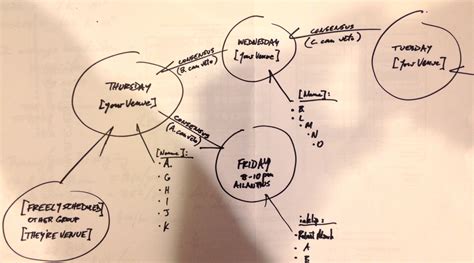 CONSENSUS
(C. can veto)
TUESDAY
[your Venue]
WEDNESDAY
[your Venue]
CONSENSUS
(B. can veto)
THURSDAY
[your Venue]
[Name]:
• B
• L
• M
• N
• O
CONSENSUS
(A. can veto)
[Name]:
• A.
• G
• H
• I
• J
• K
FRIDAY
8-10 pm
AILANTHUS
[FREELY SCHEDULED]
OTHER GROUP
[THEY'RE VENUE]
• A
• E